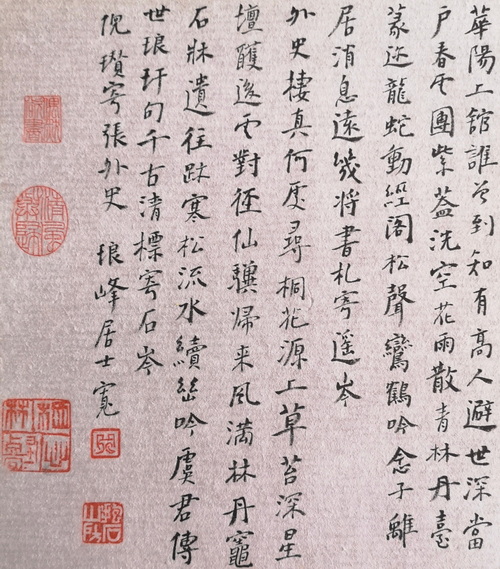 華陽上舘誰曾到知有高人避世深當
戶春雲團紫蓋洗空花雨散青林丹臺
篆迹龍蛇動經閣松聲鸞鶴吟念子離
居消息遠幾將書札寄遥岑
外史棲真何度尋桐花源上草苔深星
壇雲對徑仙驥歸来風滿林丹竈
石牀遺往跡寒松流水續幽吟虞君傳
世琅玕句千古清標寄石岑
倪瓚寄張外史 琅峰居士寬